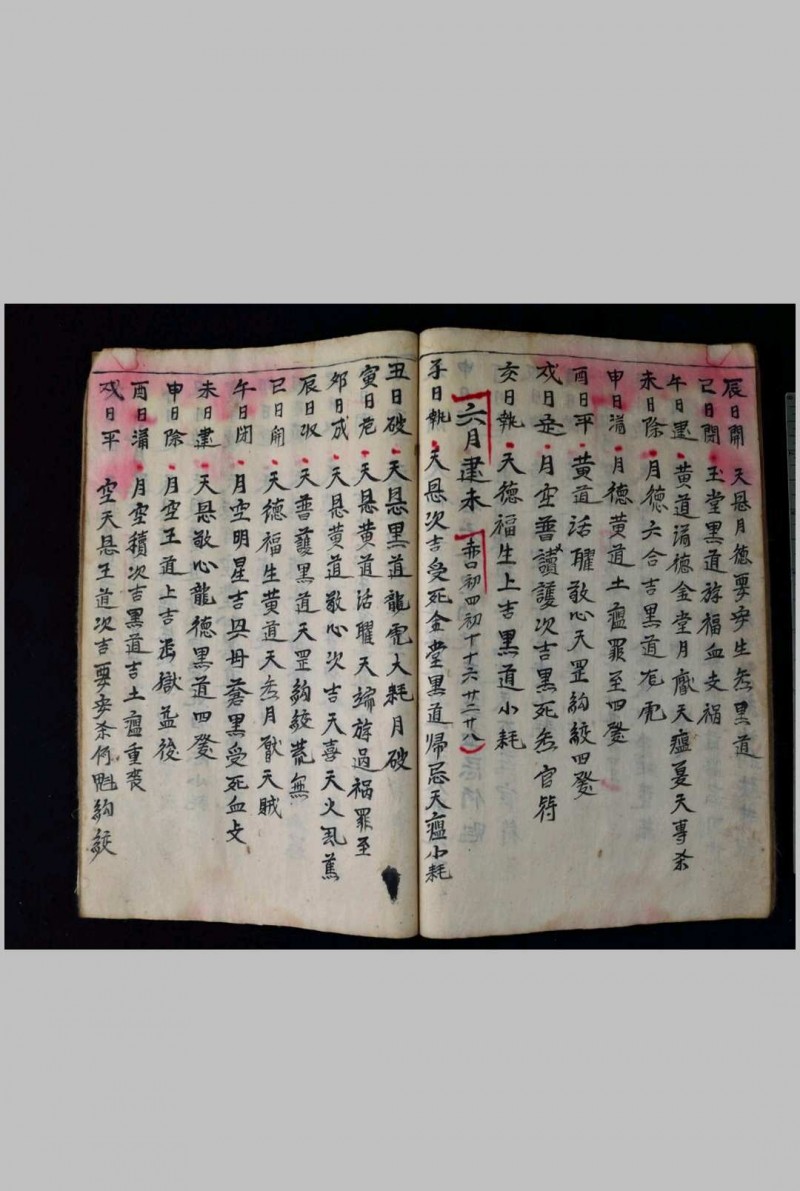 辰日開 天恩月德要安生炁黑道
巳日閉 玉堂黑道放福血支禍
午日建 黃道滿德金堂月厭天瘟夏天專杀
未日除 月德六合吉黑道尨虎
申日滿 月德黃道土瘟罪至四發
酉日平 黃道活曜敬心天罡鈎絞四發
戌日定 月空普護次吉黑死炁官符
亥日執 天德福生上吉黑道小耗
六月建未 赤口初四初十十六廿二廿八
子日執 天恩次吉受死金堂黑道帰忌天瘟小耗
丑日破 天恩黑道龍虎大耗月破
寅日危 天恩黃道活曜天瑞放過禍罪至
卯日成 天恩黃道敬心次吉天喜天火
辰日収 天普護黑道天罡鈎絞荒無
巳日開 天德福生黃道天炁月厭天賊
午日閉 月空明星吉黑受死血支
未日建 天恩敬心龍德黑道四發
申日除 月空王道上吉益後
酉日滿 月空續次吉黑道吉土瘟重喪
戌日平 空天恩王道次吉要安杀何魁鈎絞